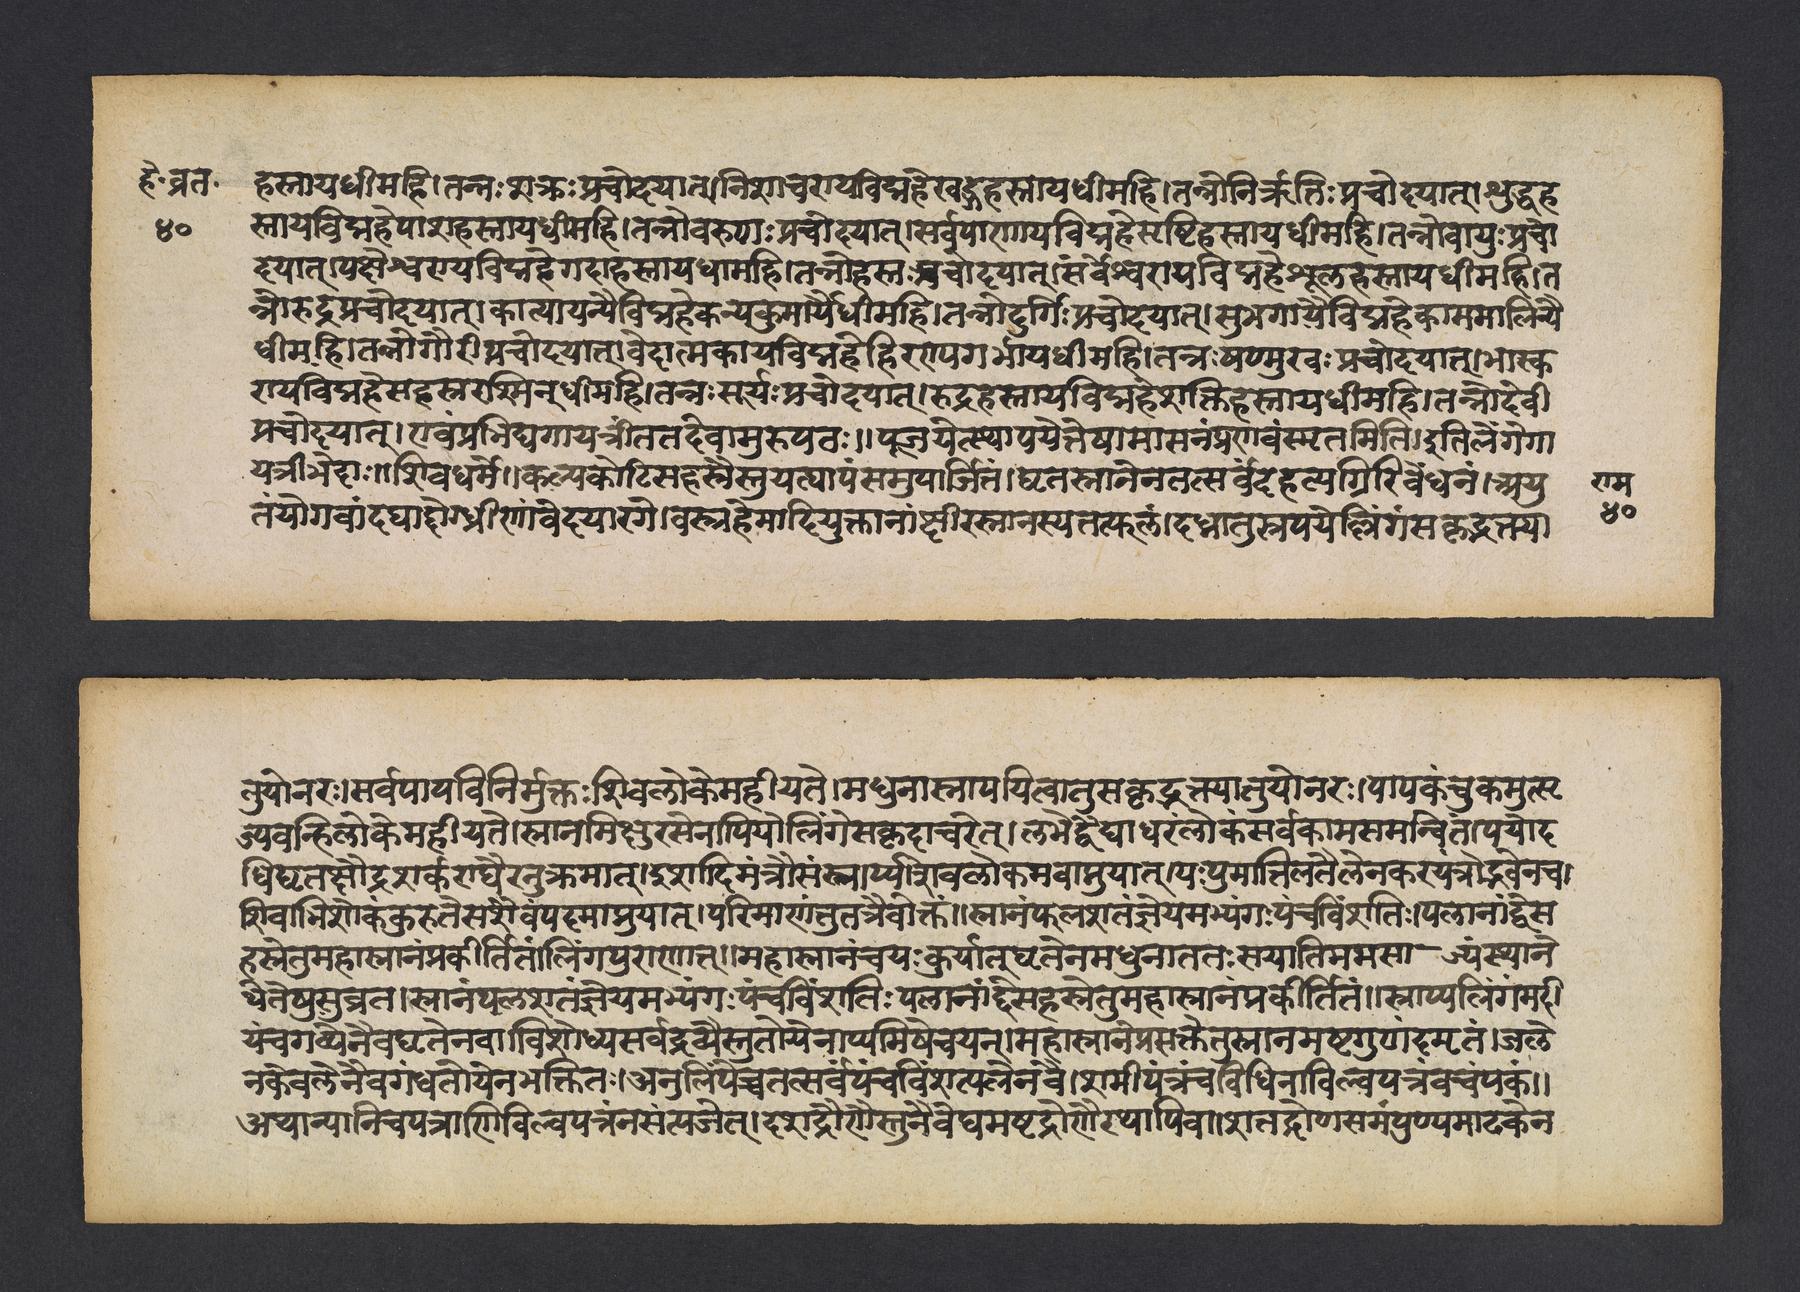 हे॰ व्रत॰
४०
हस्तायधीमहि।तन्नःशक्रःप्रचोदयात्।निशाचरायविद्महेखड्गहस्तायधीमहि।तन्नोनिर्ऋतिःप्रचोदयात्।शुद्धह
स्तायविद्महेपाशहस्तायधीमहि।तन्नोवरुणःप्रचोदयात्।सर्वप्राणायविद्महेसृष्टिहस्तायधीमहि।तन्नोवायुःप्रचो
दयात्।यक्षेश्वरायविद्महेगदाहस्तायधीमहि।तन्नो प्रचोदयात्।सर्वेश्वरायविद्महेशूलहस्तायधीमहि।त
न्नोरुद्रप्रचोदयात्।कात्यायन्यैविद्महेकन्यकुमार्यैधीमहि।तन्नोदुर्गिःप्रचोदयात्।सुभगायैविद्महेकाममालिन्यै
धीमहि।तन्नोगौरीप्रचोदयात्।वेदात्मकायविद्महेहिरण्यगर्भायधीमहि।तन्नःषण्मुखःप्रचोदयात्।भास्क
रायविद्महेसहस्ररश्मिन्धीमहि।तन्नःसूर्यःप्रचोदयात्।रुद्रहस्तायविद्महेशक्तिहस्तायधीमहि।तन्नोदेवी
प्रचोदयात्।एवंप्रभिद्यगायत्रींतत्तद्देवामुरुपतः॥पूजयेत्स्थापयेत्तेषामासनंप्रणवंस्मृतमिति।इतिलैंगेगा
यत्रीभेदाः॥शिवधर्मे॥कल्पकोटिसहस्रैस्तुयत्पापंसमुपार्जितं।घृतस्नानेनतत्सर्वंदहत्यग्निरिवेंधनं।अयु
तंयोगवांदद्याद्दोग्ध्रीणांवेदपारगे।वस्त्रहेमादियुक्तानांक्षीरस्नानस्यतत्फलं।दध्नातुस्नपयेल्लिंगंसकृद्भक्त्या
राम
४०
तुयोनरः।सर्वपापविनिर्मुक्तःशिवलोकेमहीयते।मधुनास्नापयित्वातुसकृद्भक्त्यातुयोनरः।पापकंचुकमुत्सृ
ज्यवन्हिलोकेमहीयते।स्नानमिक्षुरसेनापियोलिंगेसकृदाचरेत्।लभेद्वैद्याधरंलोकंसर्वकामसमन्वितं।पयोद
धिघृतक्षौद्रशर्कराद्यैरनुक्रमात्।इशादिमंत्रैःसंस्नाप्यशिवलोकमवाप्नुयात्।यःपुमांत्तिलतैलेनकरयंत्रोद्भवेनच।
शिवाभिशेकंकुरुतेसशैवंपदमाप्नुयात्।परिमाणंतुतत्रैवोक्तं॥स्नानंफलशतंज्ञेयमभ्यंगःपंचविंशतिः।पलानांद्वेस
हस्रेतुमहास्नानंप्रकीर्तितं।लिंगपुराणात्॥महास्नानंचयःकुर्यात्घृतेनमधुनाततःसयातिममसा–ज्यंस्थानं
थैतेषुसुव्रत।स्नानंपलशतंज्ञेयमभ्यंगःपंचविंशतिःपलानांद्वेसहस्रेतुमहास्नानंप्रकीर्तितं॥स्नाप्यलिंगंमदी
यंचगव्येनैवघृतेनवा।विशोध्यसर्वद्रव्यैस्तुतोयेनाप्यभिषेचयेन्।महास्नानेप्रसक्तेतुस्नानमष्टगुणंदमृतं।जले
नकेवलेनैवगंधतोयेनभक्तितः।अनुलिंपेच्चतत्सर्वंपंचविंशत्पलेनवै।शमीपत्रंचविधिनाविल्वपत्रंचचंपकं॥
अथान्यानिचपत्राणिविल्वपत्रंनसंत्यजेत्।दशद्रोणैस्तुनैवेद्यमष्टद्रोणैरथापिवा॥शतद्रोणसमंपुण्यमाढकेन